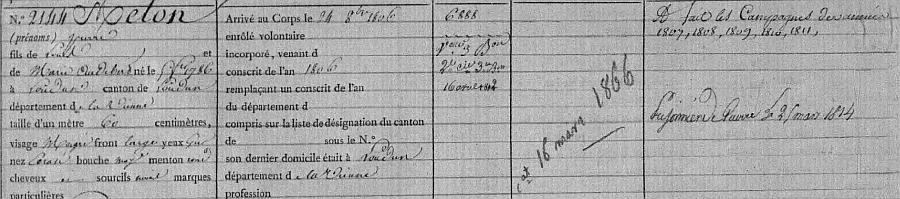 N.º 2144 Melon
(prénoms) pierre
fils de Louis et
de Marie né le 1786
à Loudun canton de Loudun
département d e la Vienne
taille d'un mètre 60 centimètres,
visage Maigre front large yeux gris
nez bouche moy. menton rond
cheveux et sourcils marques
particulières
Arrivé au Corps le 24 8bre 1806
enrôlé volontaire
incorporé, venant d
conscrit de l'an 1806
remplaçant un conscrit de l'an
du département d
compris sur la liste de désignation du canton
de sous le N.º
son dernier domicile était à Loudun
département d e la Vienne
profession
6888
2e Cie 3me Bon
16 avril 1812
cat 16 mars 1866
A fait les Campagnes des années
1807, 1808, 1809, 1810, 1811,
Prisonnier de Guerre le 25 mars 1814